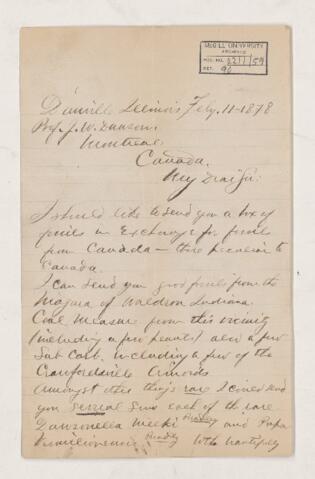 McGILL UNIVERSITY
ARCHIVES
ACC. NO. 2211/59
REF. 90
Danville Illinois Feby. 11-1878
Prof. J. W. Dawson.
Montreal.
Canada.
My Dear Sir:
I should like to send you a box of
fossils in Exchange for fossils
from Canada — those peculiar to
Canada.
I can send you good fossils from the
Niagara of Waldron Indiana.
Coal Measure from this vicinity
(including a few plants) also a few
Sub Carb. including a few of the
Crawfordsville Crinoids
Amongst other things rare I could send
you several each of the rare
Dawsonella Meeki Bradley and Pupa
Vermilionensis Bradley both beautifully